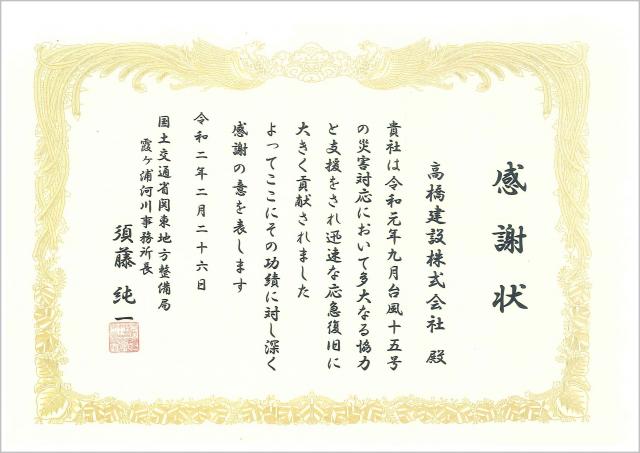 感謝状
高橋建設株式会社 殿
貴社は令和元年九月台風十五号
の災害対応において多大なる協力
と支援をされ迅速な応急復旧に
大きく貢献されました
よってここにその功績に対し深く
感謝の意を表します
令和二年二月二十六日
国土交通省関東地方整備局
霞ヶ浦河川事務所長
須藤 純一